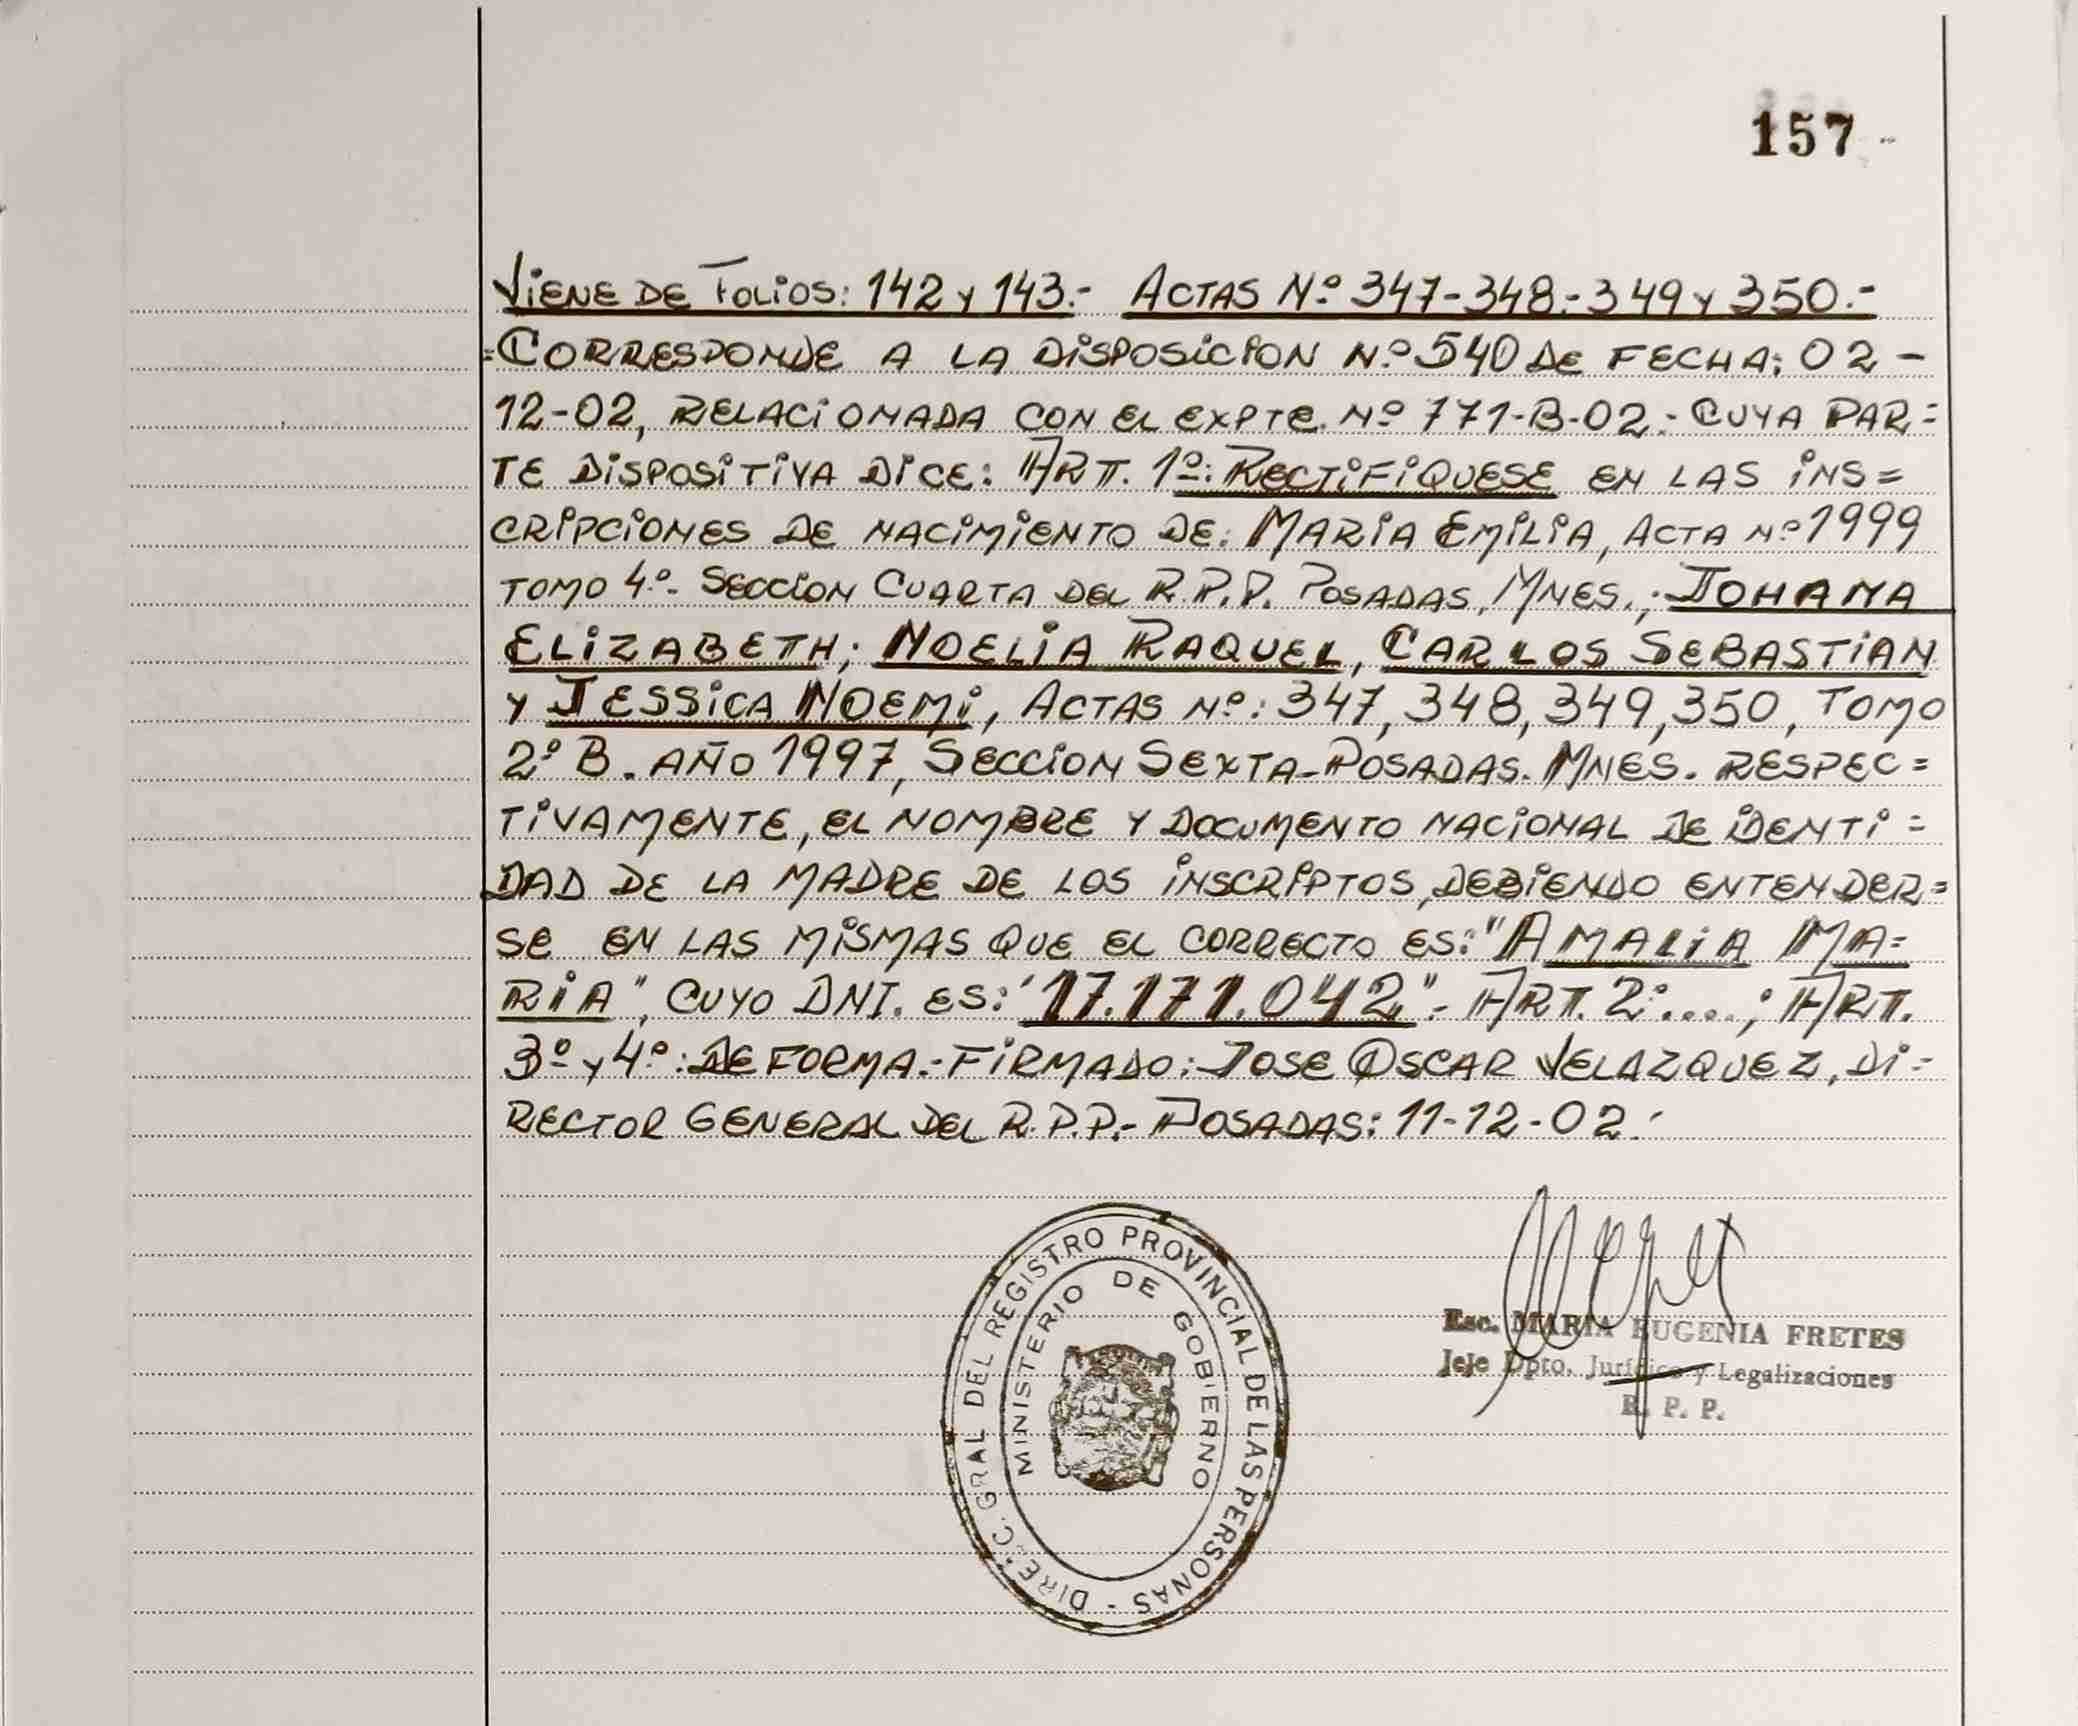 157
Viene de Folios: 142 y 143.- Actas Nº 347-348.-349 y 350.-
=Corresponde a la Disposicion Nº 540 de fecha: 02-
12-02, relacionada con el Expte. Nº 771-B-02.- cuya par=
te dispositiva dice: Art. 1º: Rectifiquese en las ins=
cripciones de nacimiento de: Maria Emilia, Acta Nº 1999
Tomo 4º- Seccion Cuarta del R.P.P. Posadas, Mnes.; Johana
Elizabeth; Noelia Raquel, Carlos Sebastian
y Jessica Noemi, Actas Nº: 347, 348, 349, 350, Tomo
2º B. año 1997, Seccion Sexta-Posadas. Mnes. respec=
tivamente, el nombre y documento nacional de identi=
dad de la madre de los inscriptos, debiendo entender=
se en las mismas que el correcto es: "Amalia Ma=
ria", cuyo DNI. es: "17.171.042".- Art. 2º:....; Art.
3º y 4º: de forma.- Firmado: Jose Oscar Velazquez, Di=
rector General del R.P.P.- Posadas: 11-12-02.-
DIREC. GRAL DEL REGISTRO PROVINCIAL DE LAS PERSONAS -
MINISTERIO DE GOBIERNO
Esc. MARIA EUGENIA FRETES
Jefe Dpto. Jurídico y Legalizaciones
R. P. P.